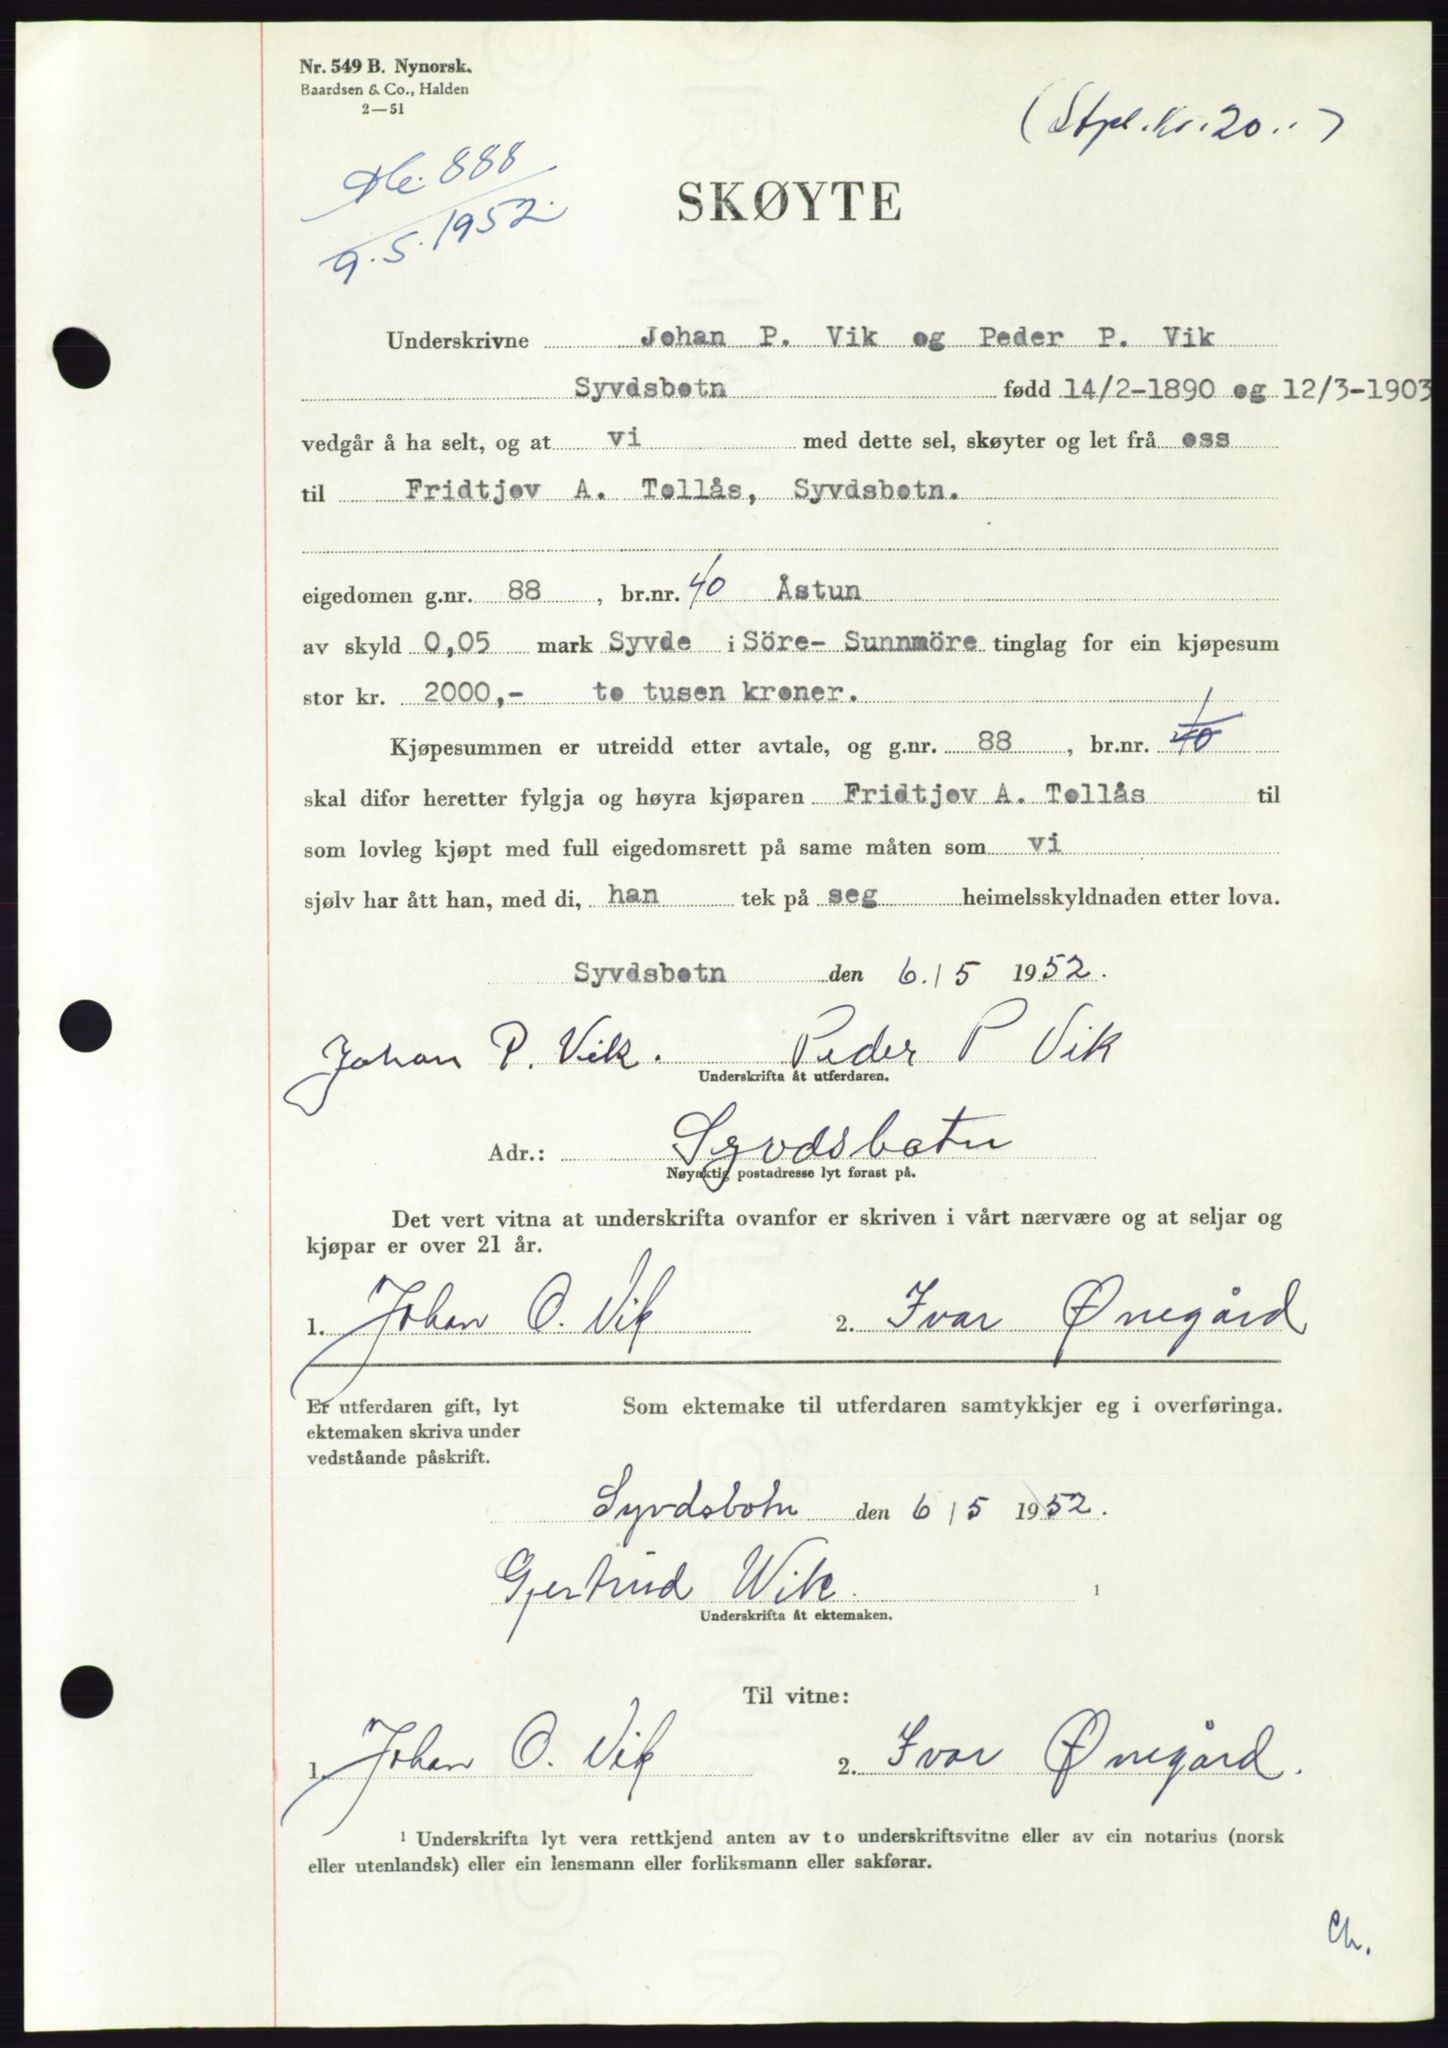 Nr. 549 B. Nynorsk.
Baardsen & Co., Halden
2—51
(Stpl. kr. 20.-)
888
9.5.1952.
SKØYTE
Underskrivne Johan P. Vik og Peder P. Vik
Syvdsbotn født 14/2-1890 og 12/3-1903
vedgår å ha selt, og at vi med dette sel, skøyter og let frå oss
til Fridtjov A. Tollås, Syvdsbotn.
eigedomen g.nr. 88, br.nr. 40 Åstun
av skyld 0,05 mark Syvde i Söre- Sunnmöre tinglag for ein kjøpesum
stor kr. 2000,- to tusen kroner.
Kjøpesummen er utreidd etter avtale, og g.nr. 88, br.nr. 40
skal difor heretter fylgja og høyra kjøparen Fridtjov A. Tollås til
som lovleg kjøpt med full eigedomsrett på same måten som vi
sjølv har ått han, med di, han tek på seg heimelsskyldnaden etter lova.
Syvdsbotn den 6./5 1952.
Johan P. Vik. Peder P Vik
Underskrifta åt utferdaren.
Adr.: Syvdsbotn
Nøyaktig postadresse lyt førast på.
Det vert vitna at underskrifta ovanfor er skriven i vårt nærvære og at seljar og
kjøpar er over 21 år.
1. Johan O. Vik 2. Ivar Ønegård
Er utferdaren gift, lyt Som ektemake til utferdaren samtykkjer eg i overføringa.
ektemaken skriva under
vedståande påskrift.
Syvdsbotn den 6/5 1952.
Gjertrud Wik. 1
Underskrifta åt ektemaken.
Til vitne:
1. Johan O. Vik 2. Ivar Ønegård.
1 Underskrifta lyt vera rettkjend anten av to underskriftsvitne eller av ein notarius (norsk
eller utenlandsk) eller ein lensmann eller forliksmann eller sakførar.
Ch.